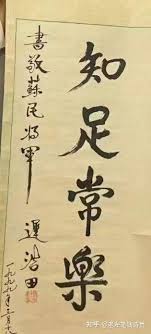 知足常樂
書敬蘇民将軍
遲浩田
一九九九年三月十